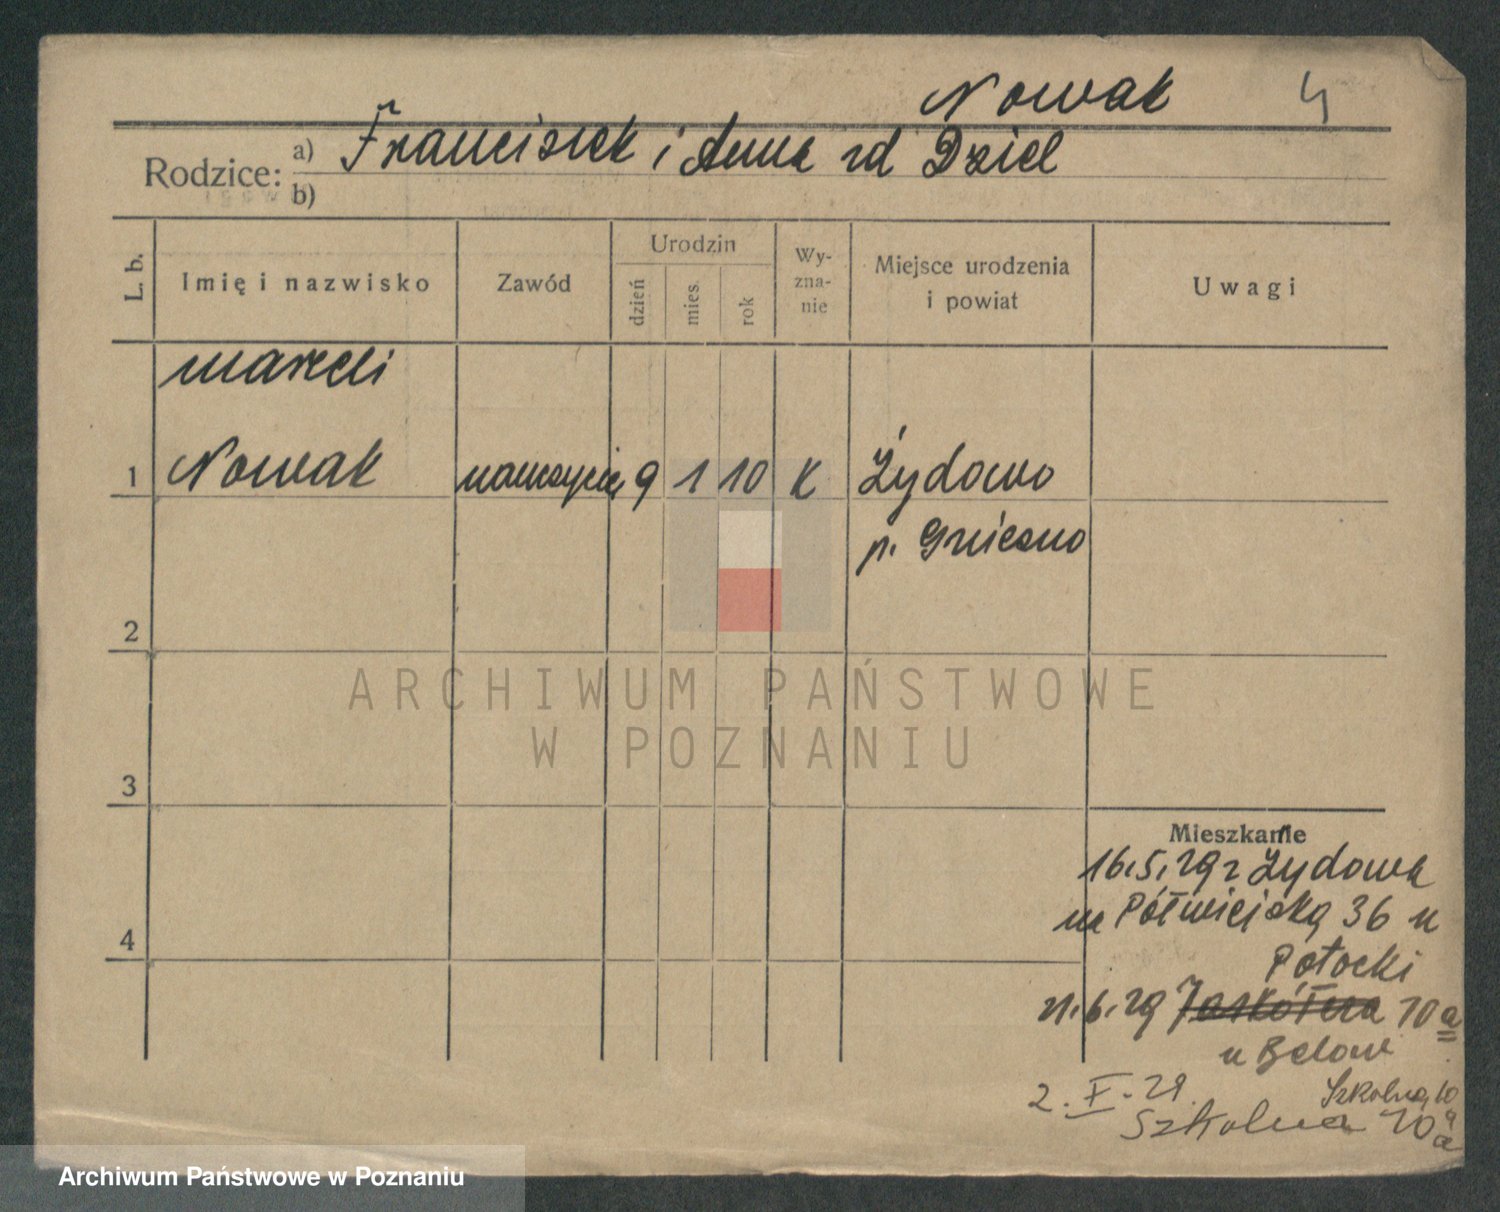 Nowak 4
Rodzice: a) Franciszek i Anna zd Dziel
b)
L. b. Imię i nazwisko Zawód Urodzin dzień mies. rok Wy-zna-nie Miejsce urodzenia i powiat Uwagi
Marceli
1 Nowak nauczyciel 9 1 10 K Żydowo
p. Gniezno
2
ARCHIWUM PAŃSTWOWE
W POZNANIU
3
Mieszkanie
16.5.29 z Żydowa
na Półwiejską 36 u
Potocki
21.6.29 10a
u Below
2. X. 29. Szkolna 10a
Szkolna 10a
4
Archiwum Państwowe w Poznaniu